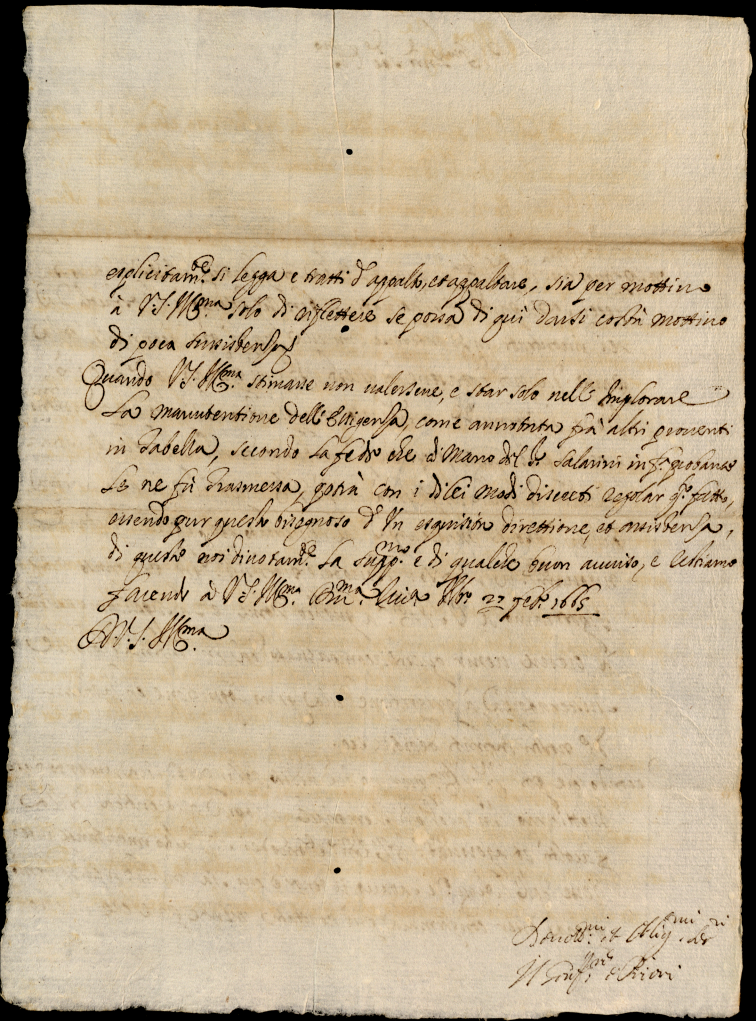 esplicitam.te si legga e tratti d'appalti, et appaltare, sia per mottivo
à V.S. Ill.ma solo di riflettere se possa di quì darsi costà mottivo
di poca sussistenza.
Quando V.S. Ill.ma stimasse non valersene, e star solo nell'implorare
la manutentione dell'esigenza, come annotata frà altri proventi
in Tabella, secondo la fede che di Mano del Sr. Salarini in
le ne fù trasmessa, potrà con i di lei modi discreti regolar q.o fatto,
essendo pur questo bisognoso d'un esquisita direttione, et assistenza,
di questo noi divotam.te la supp.mo e di qualche buon avviso, e restiamo
facendo à V.S. Ill.ma Hum.ma 27 7bre 1665
D. V.S. Ill.ma
Devot.mi et Oblig.mi
Il Conf.re e Priori